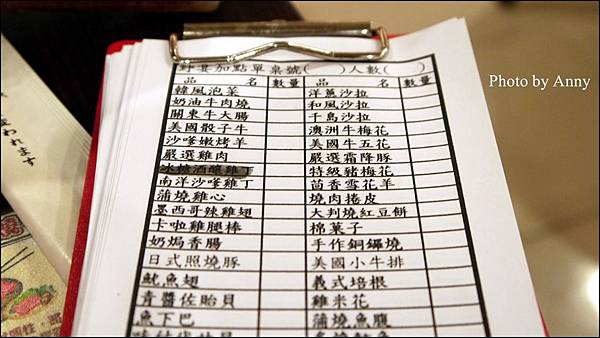 加點單桌號( )人數( )
品名 數量 品名 數量
韓風泡菜 洋蔥沙拉
奶油牛肉燒 和風沙拉
關東牛大腸 千島沙拉
美國骰子牛 澳洲牛梅花
沙嗲嫩烤羊 美國牛五花
嚴選雞肉 嚴選霜降豚
冰糖酒釀雞丁 特級豬梅花
南洋沙嗲雞丁 茴香雪花羊
蒲燒雞心 燒肉捲皮
墨西哥辣雞翅 大判燒紅豆餅
卡啦雞腿棒 棉菓子
奶焗香腸 手作銅鑼燒
日式照燒豚 美國小牛排
魷魚翅 義式培根
青醬佐貽貝 雞米花
魚下巴 蒲燒魚腹
Photo by Anny
われます